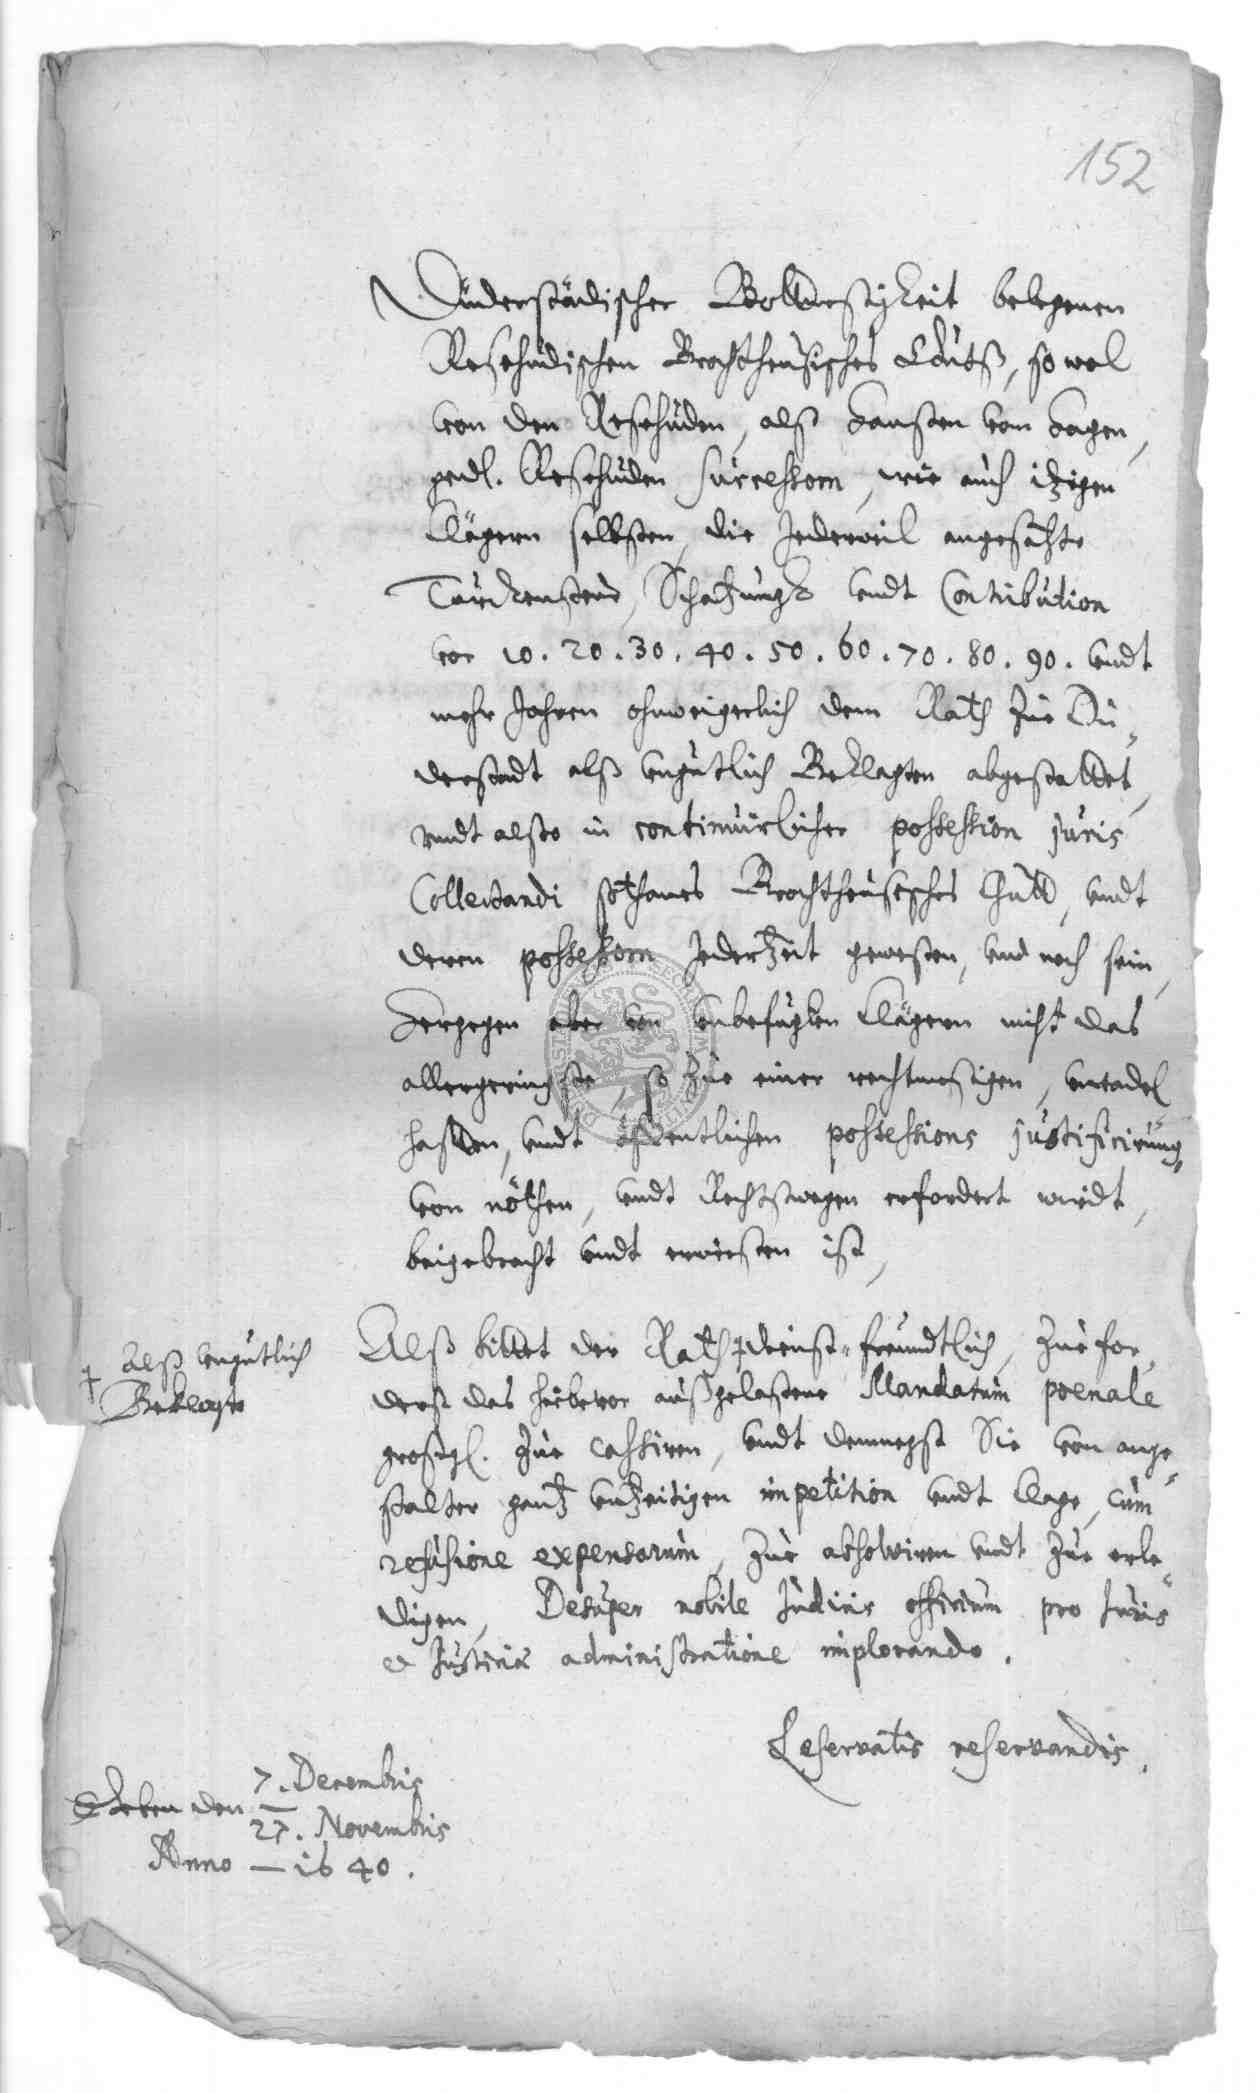 152
Duderstädischer Bottmeßigkeit belegenen
Resehudischen Brochtheusisches Gutß, so wol
von den Resehuden, alß Hansten vom Hagen,
gedl. Resehuden successorn, wie auch itzigen
Clägern selbsten, die Jederweil angesetzte
Turckensteur, Schatzungk undt Contribution
vor 10. 20. 30. 40. 50. 60. 70. 80. 90. undt
mehr Jahren ohnweigerlich dem Rath zue Du-
derstadt alß ungutlich Beklagten abgestattet,
undt alßo in continuirlicher possession juris
Collectandi sothanes Brochtheusisches Gutt, undt
deren possessorn Jederzeit geweßen, und noch sein,
Hergegen aber von unbefugten Clägern nicht das
allergeringste, so zue einer rechtmeßigen, untadel
hafften, undt öffentlichen possessions justificirung,
von nöthen, undt Rechtswegen erfordert wirdt,
beigebracht undt erwießen ist,
Alß bittet der Rath † dienst-freundtlich, zue for
† alß ungutlich
Beklagte
derst das hiebevor außgelaßene Mandatum poenale
großgl. zue cassiren, undt demnegst Sie von ange-
stalter gantz unzeitigen impetition undt Clage, cum
refusione expensarum, zue absolviren undt zue erle-
digen, Desuper nobile Judicis officium pro Juris
et Justitiae administratione implorando.
Reservatis reservandis.
Geben den 7. Decembris
27. Novembris
Anno — 1640.